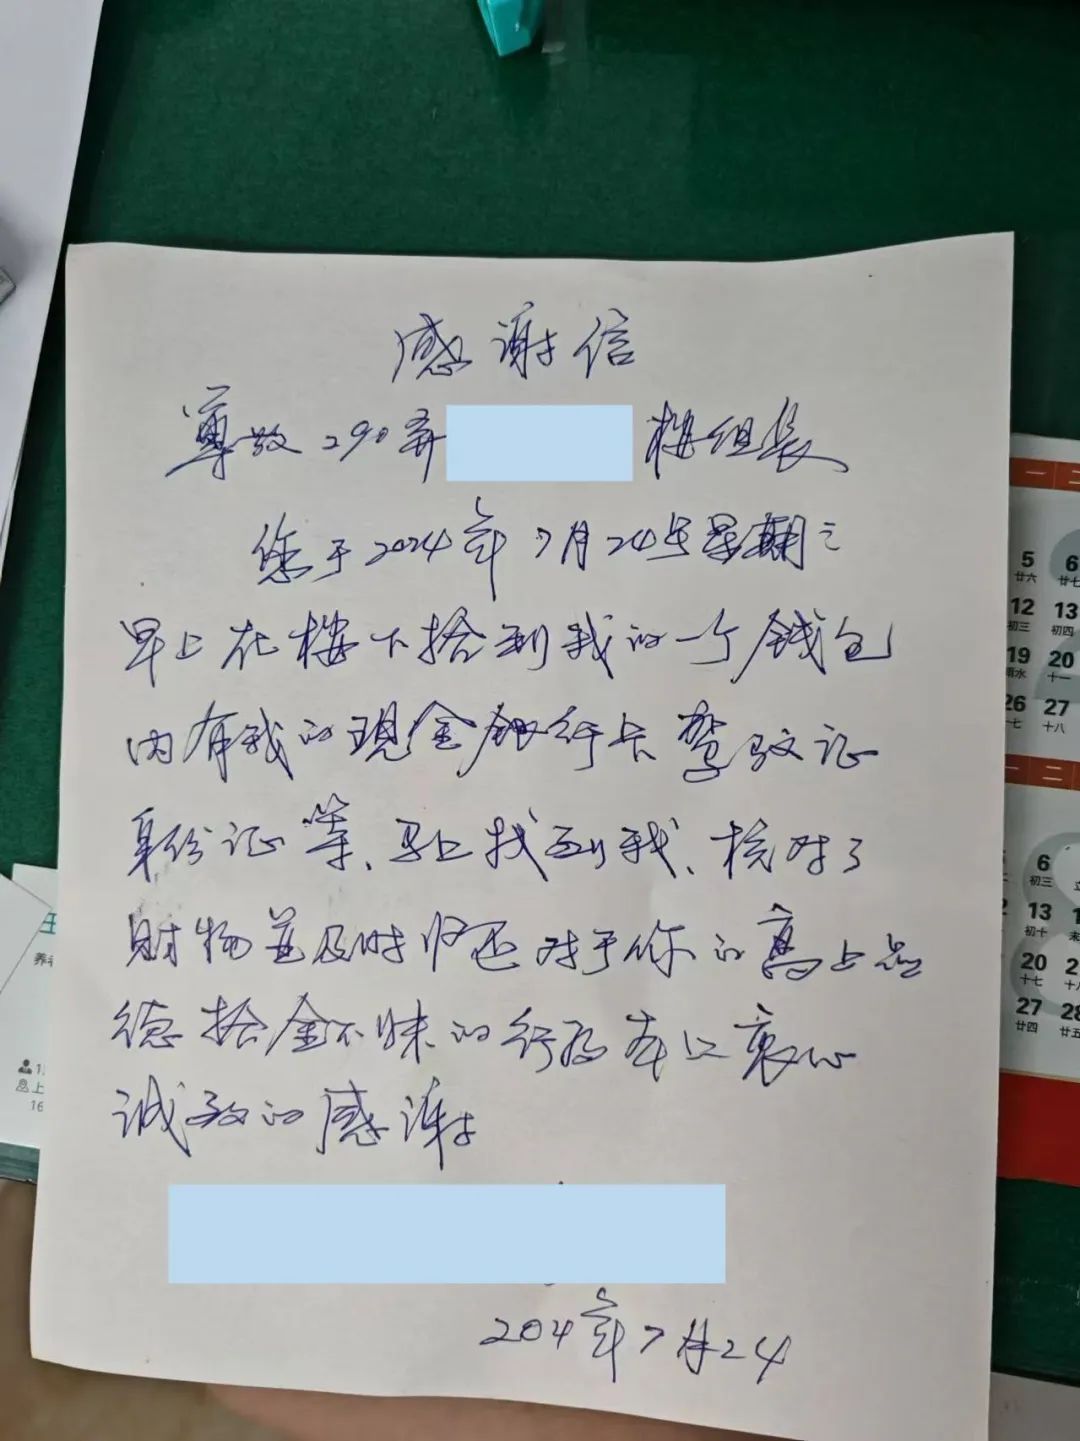 感谢信
尊敬290弄
楼组长
您于2024年7月24号星期三
早上在楼下捨到我的一个钱包
内有我的现金银行卡驾驶证
身份证等、马上找到我、核对了
财物并及时归还对于你的高上品
德拾金不昧的行为本人衷心
诚致的感谢
204年7月24
一 二
5 6
廿六 廿七
12 13
初三 初四
19 20
雨水 十一
26 27
十八
一 二 三
6
初三
13
初十
20
十七
27 28
廿四 廿五
养老
上
16